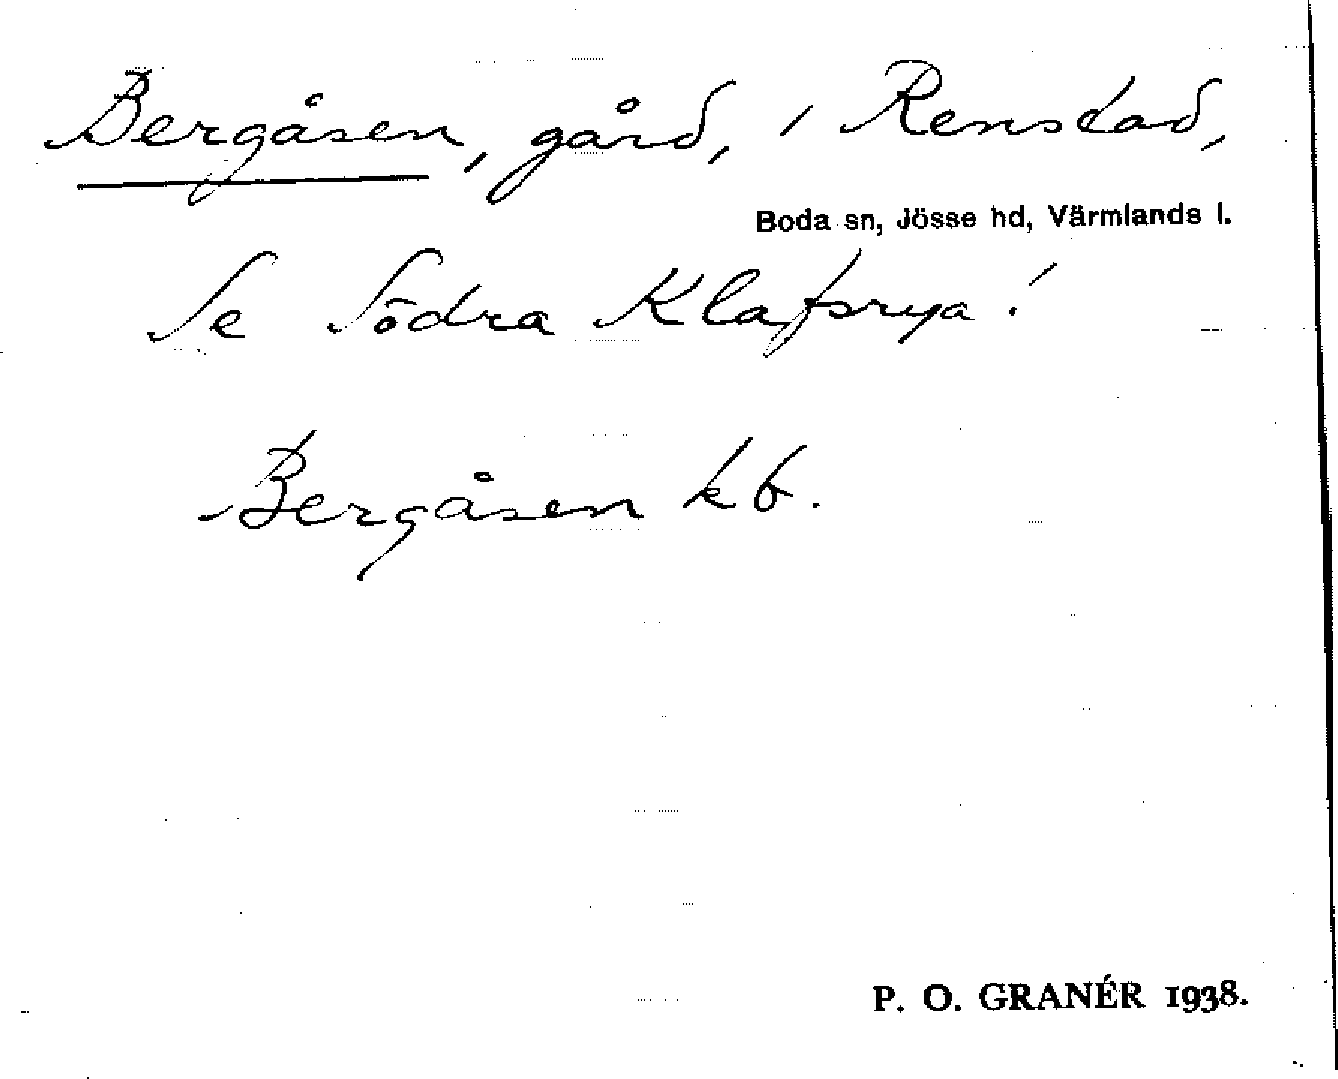 Bergåsen, gård, i Renstad,
Boda sn, Jösse hd, Värmlands l.
Se Södra Klafsrya!
Bergåsen kb.
P. O. GRANÉR 1938.